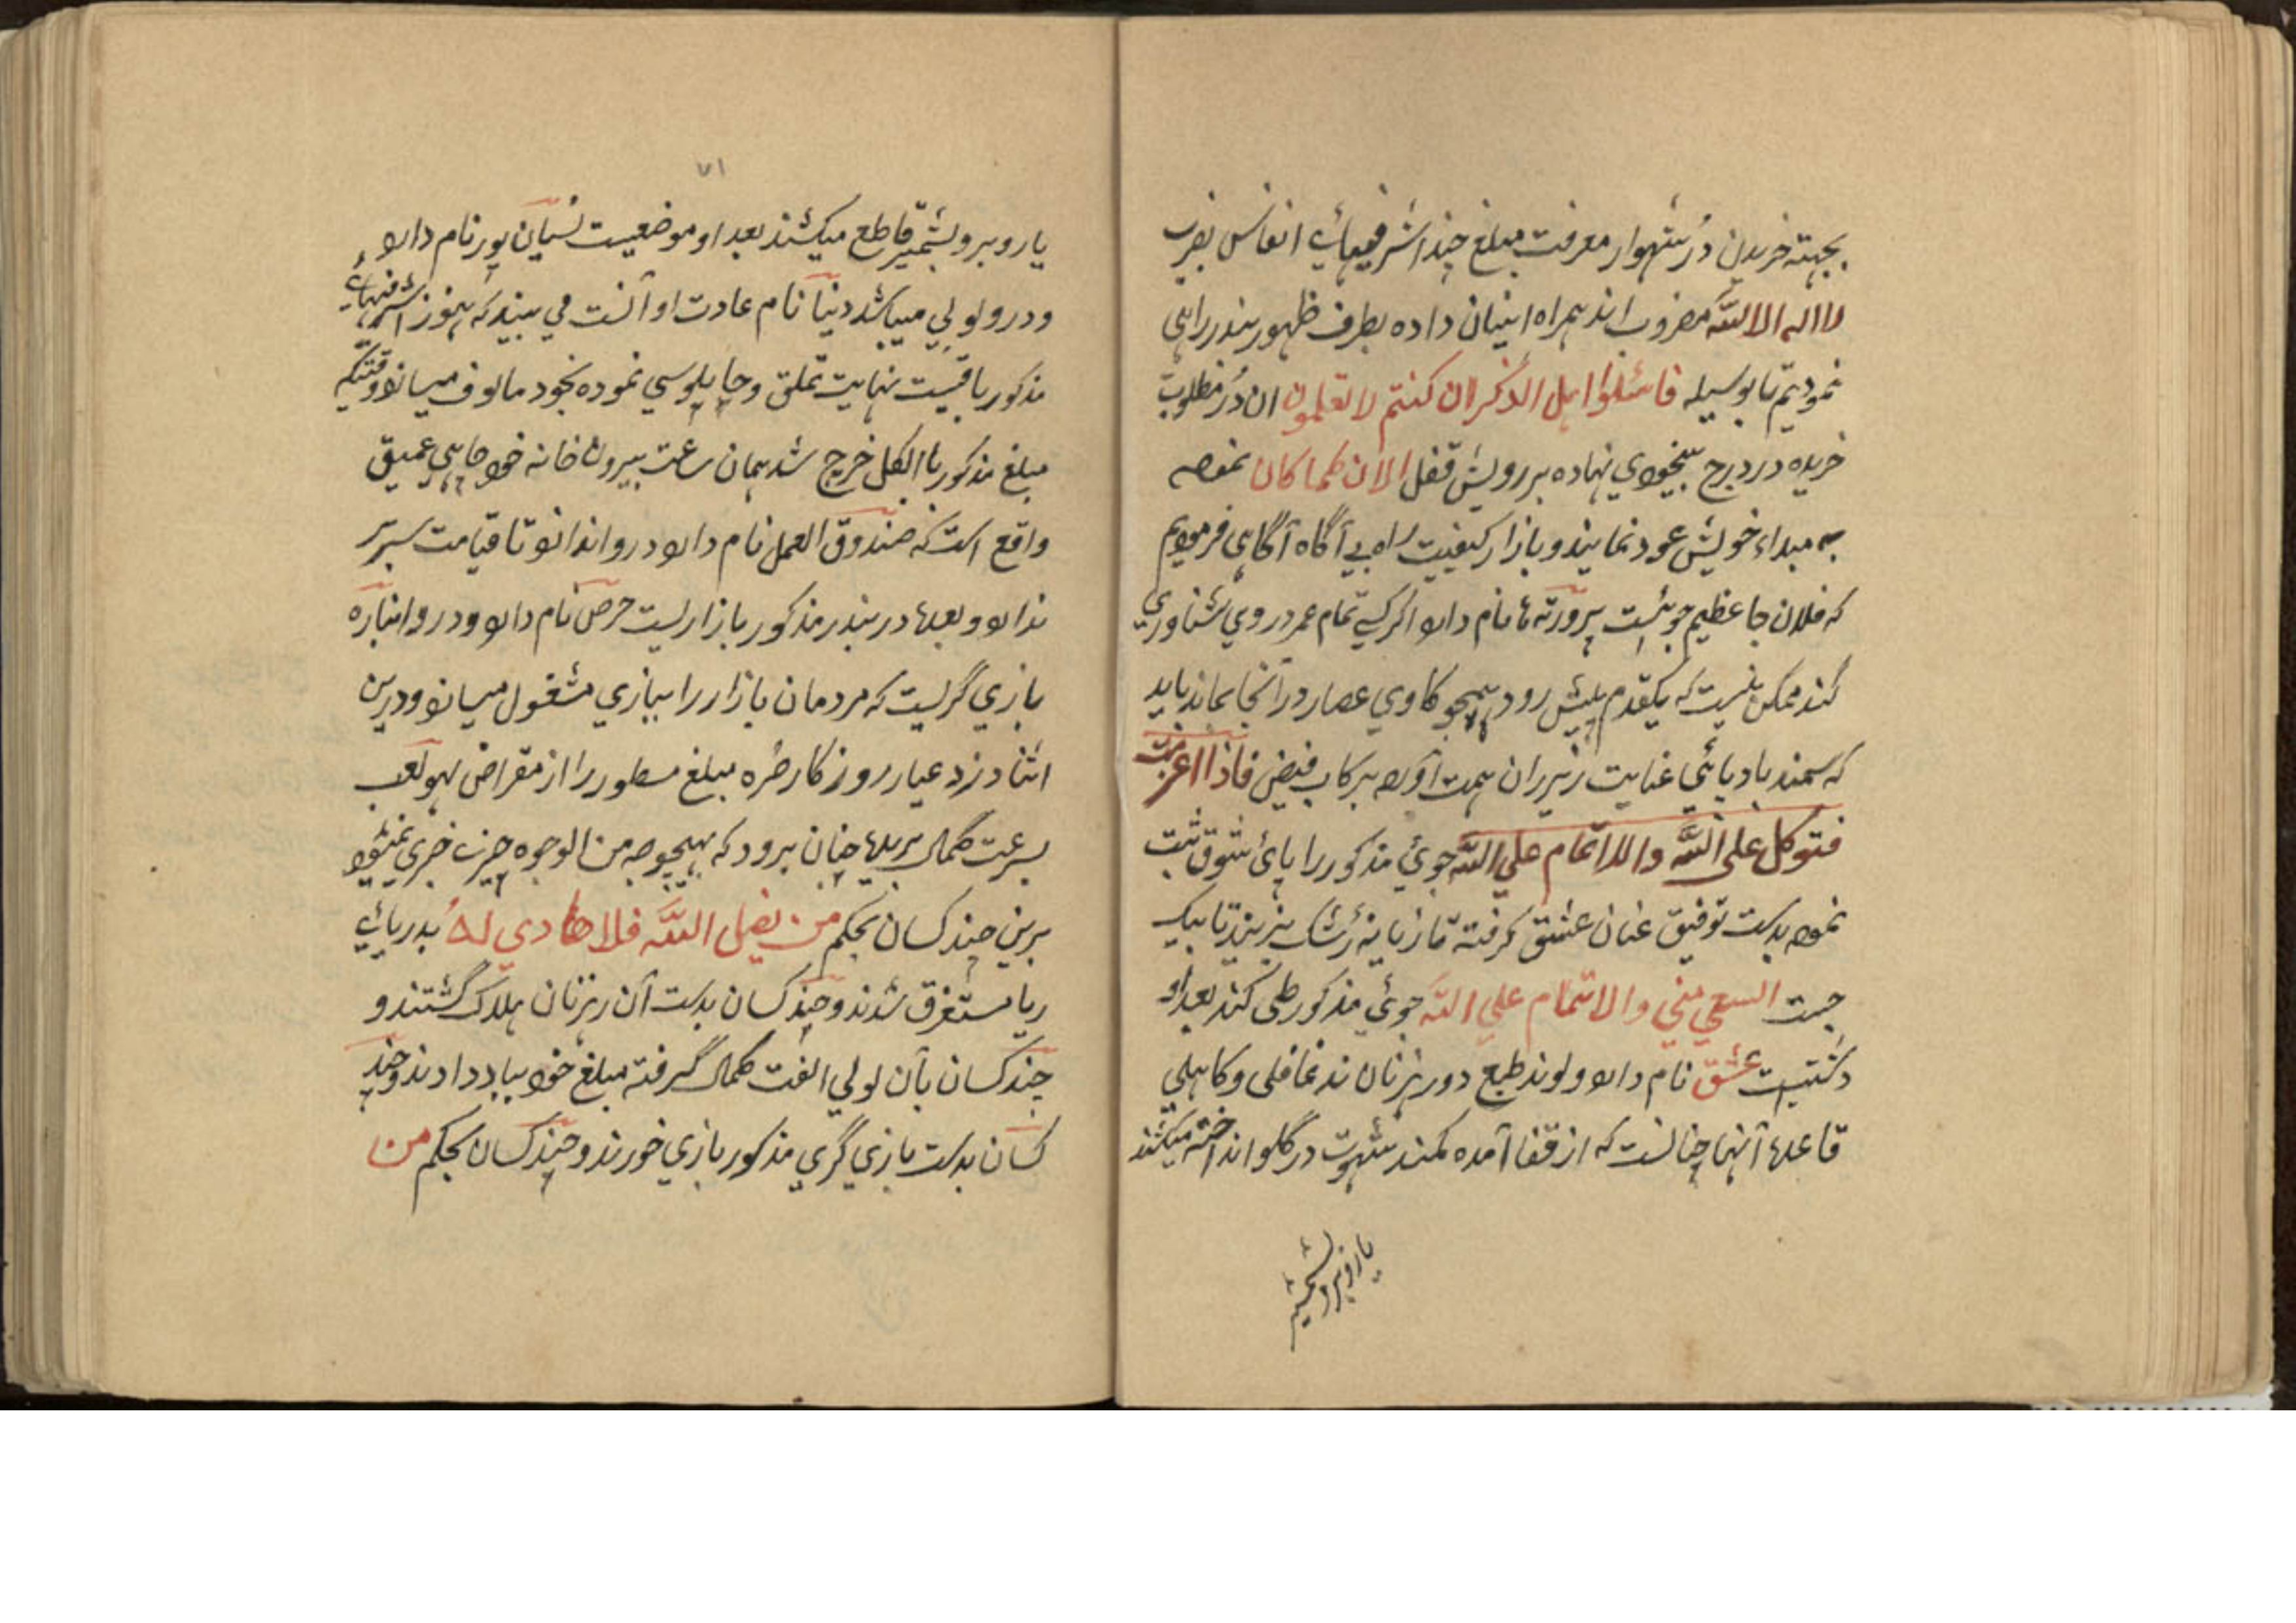 بجهته خریدن دُر شهوار معرفت مبلغ چند اشرفیهائے انفاس بضرب
لا اله الا اللّه مضروب اند همراه اینان داده بطرف ظهور بندر راهی
نمودیم تا بوسیله فاسئلوا اهل الذکر ان کنتم لا تعلمون ان دُر مطلوب
خریده در درج بیخودی نهاده بر رویش قفل الان کما کان نموده
به مبداء خویش عود نمایند و بازار کیفیت راه بے آگاه آگاهی فرمودیم
که فلان جا عظیم جوئیست پرورته ها نام دارد اگر کسے تمام عمر در وی شناوری
کند ممکن نیست که یکقدم پیش رود همچو کاوی عصار در آنجا بماند باید
که سمند باد پائی عنایت زیر ران همت آورده برکاب فیض فاذا اعزمت
فتوکل علی اللّه والا اتمام علی اللّه جوئ مذکور را پائ شوق ثبت
نموده بدست توفیق عنان عشق گرفته تازیانه بزنند تا بیک
جست السعی منی والاتمام علی اللّه جوئ مذکور طی کند بعد او
دشتیست عشق نام دارد ولوند طبع دو رهزنان ند غافلی و کاهلی
قاعدہ آنها چنانست که از قفا آمده کمند شهوت در گلو انداخته میکشند
یا روبرو بشمشیر
۷۱
یا روبرو بشمشیر قاطع میکشند بعد او موضعیست نسیان پور نام دارد
و درو لولی میباشد دنیا نام عادت او آنست می بیند که هنوز اشرفیهائے
مذکور باقیست نهایت تملق و چاپلوسی نموده بخود مالوف میسازد وقتیکه
مبلغ مذکور بالکل خرج شد همان ساعت بیرون خانه خود چاهی عمیق
واقع است که صندوق العمل نام دارد درو اندازد تا قیامت سر بر
ندارد و بعده در بندر مذکور بازاریست حرص نام دارد و درو انباره
بازی گریست که مردمان بازار را ببازی مشغول میسازد و درین
اثنا دزد عیار روزگار طره مبلغ مسطور را از مقراض لهو لعب
بسرعت کمال بریده چنان برود که بهیچوجه من الوجوه خبری نمیشود
برین چند کسان بحکم من یضل اللّه فلا هادی له بدریائے
ریا مستغرق شدند و چند کسان بدست آن رهزنان هلاک گشتند و
چند کسان بآن لولی الفت کمال گرفته مبلغ خود بباد دادند و چند
کسان بدست بازی گری مذکور بازی خوردند و چند کسان بحکم من